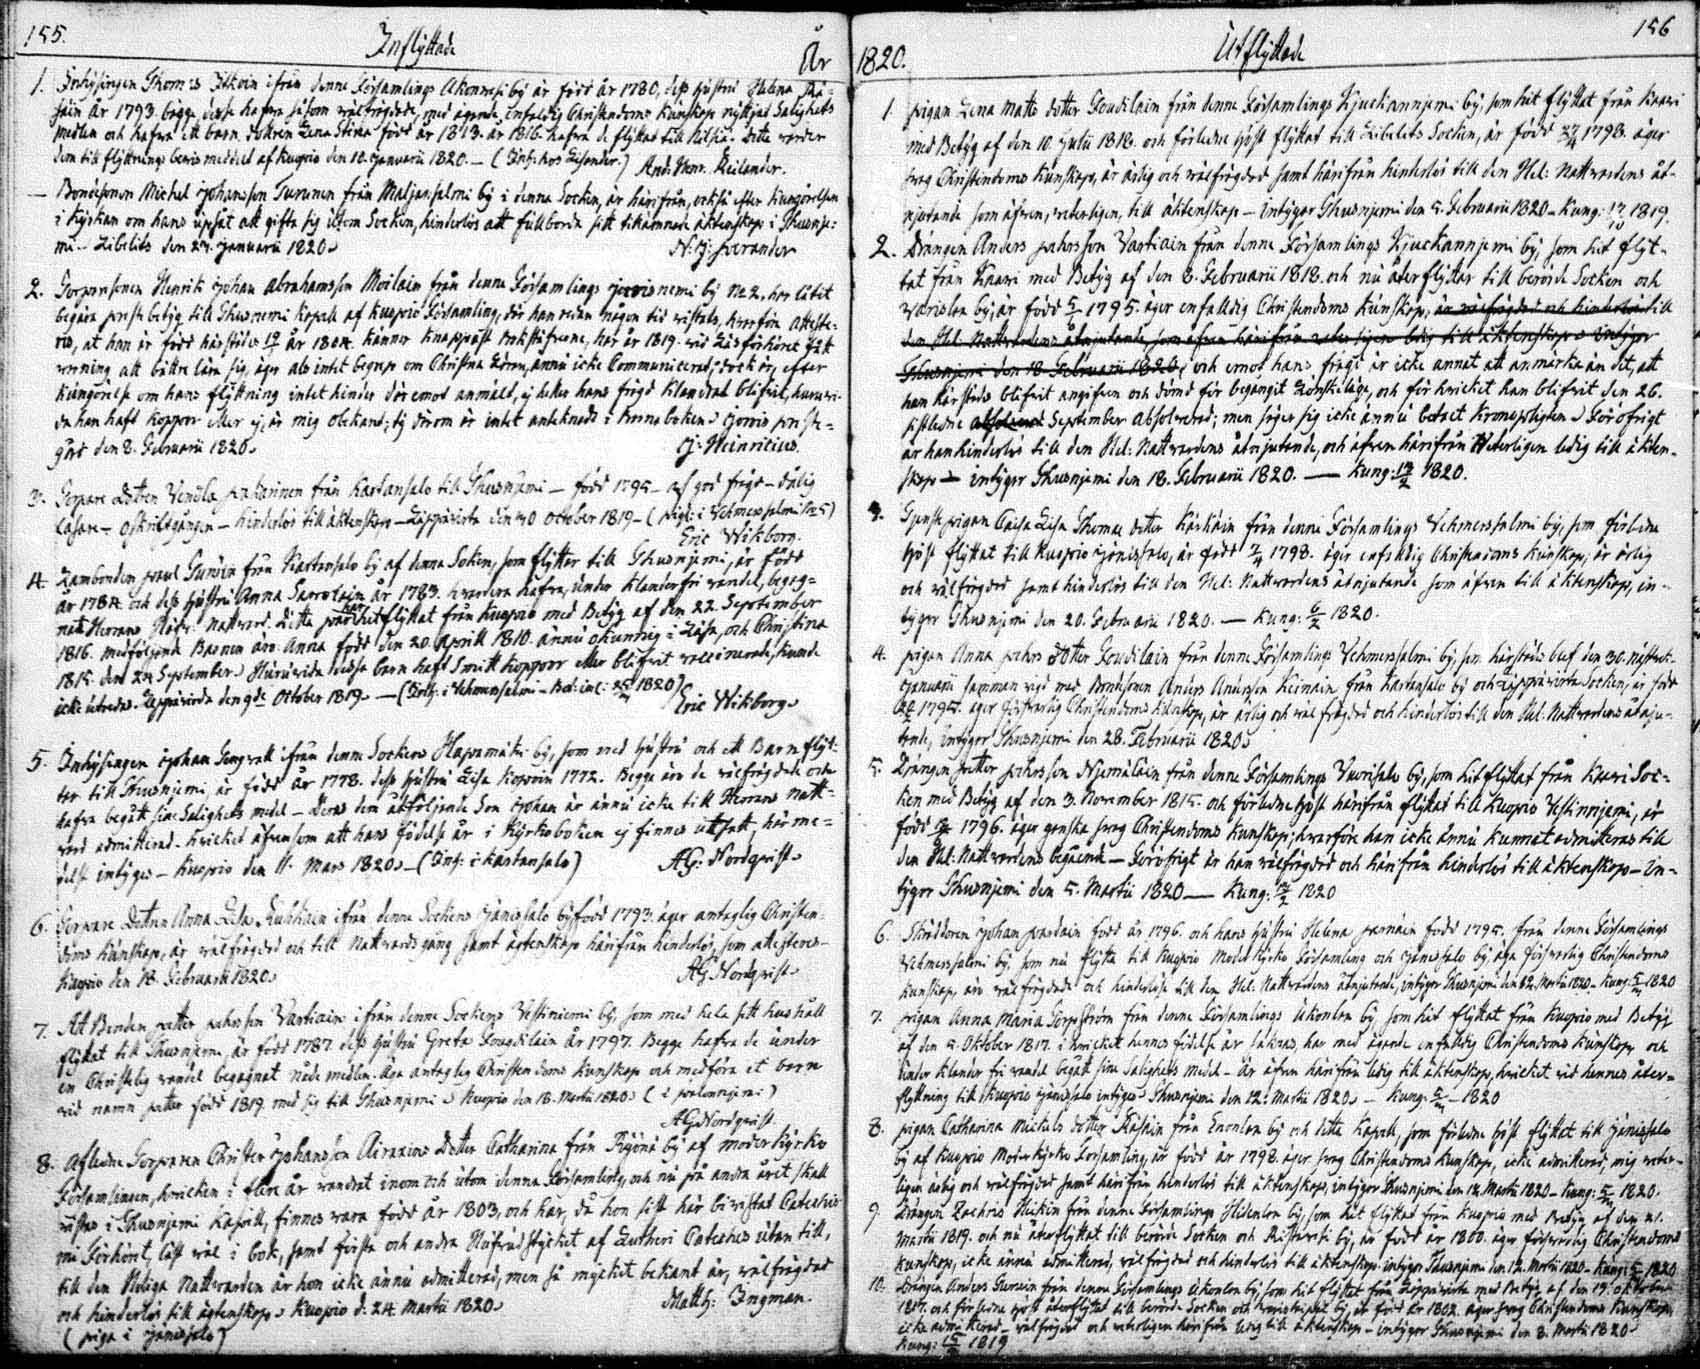 155.
Inflyttade
År
1. Inhysingen Thomas ifrån denne Församlings by är född år 1780, dess hustru Helena
år 1793. bägge desse hafva såsom välfrägdade, med ägande enfaldig Christendoms Kunskap nyttjat Salighets
medlen och hafva ett barn, dottren Lena Stina född år 1813. år 1816. hafva de flyttat till Nilsiä. Detta varder
dem till flyttnings bevis meddelt af Kuopio den 10. Januarii 1820. — (Inh: hos )
— Bondesonen Michel Johansson Turunen från by i denna Socken, är härifrån, också efter Kungörelsen
i Kyrkan om hans upsåt att gifta sig utom Socken, hinderlös att fullborda sitt tilkämnade äktenskap i Thusnje-
mi — Libelits den 27. Januarii 1820.
2. Torparesonen Henrik Johan Abrahamsson Moilain från denne Församlings by No 2. har låtit
begära preste betyg till Thusniemi Kapell af Kuopio Församling, där han redan någon tid vistats, hvarföre atteste-
ras, at han är född härstädes år 1804. känner knappast bokstäfverne, har år 1819. vid Läsförhöret fått
varning att bättre lära sig, äger altså intet begrep om Christna Läran, ännu icke Communicerad; dock är, efter
kungörelse om hans flyttning intet hinder deremot anmält, ej heller hans frägd klandrad blifvit, huruvi-
da han haft koppor eller ej, är mig obekant; ty derom är intet anteknadt i Barnaboken. preste-
gård den 8. Februarii 1820.
J: Heinricius.
3. Torpare Enkan Venla från Kartansalo till Thusnjemi — född 1795 — af god frägd — dålig
läsare — oskriftgången — hinderlös till äktenskap — Leppävirta den 30 October 1819 — (piga: i Vehmersalmi No 5)
Eric Wikborg.
4. Landbonden Paul från Kartansalo by af denna Socken, som flyttar till Thusnjemi, är född
år 1784. och dess hustru Anna år 1783. hvardera hafva, under klanderfri vandel, begag-
nat Herrans Natvard. Detta par har hit flyttat från Kuopio med Betyg af den 22. September
1816. Medföljande Barnen äro: Anna född den 20. Aprill 1810. ännu okunnig i Läsa, och Christina
1815. den 24 September. Huruvida desse barn haft Smittkoppor eller blifvit vaccinerade, kunde
icke utredas. Leppävirta den 9de October 1819. — (Inh: i Vehmersalmi — 1820)
Eric Wikborg.
5. Inhysingen Johan ifrån denne Sockens by, som med hustru och ett Barn flyt-
tar till Thusnjemi, är född år 1778. dess hustru Lisa 1772. Begge äro de välfrägdade och
hafva begått sine Salighets medel — Deras dem åtföljande Son Johan är ännu icke till Herrans natt-
vard admitterad. Hvilket äfvensom att hans födelse år i Kyrkoboken ej finnes utsatt, här me-
delst intygas — Kuopio den 11. Mars 1820. — (Inh: i Kartansalo)
AG: Nordqvist.
6. Torpare Dottren Anna Lisa ifrån denne Sockens Jänissalo by född 1793. äger antaglig Christen-
doms Kunskap, är välfrägdad och till Nattvards gång samt äktenskap härifrån hinderlös, som attesteras —
Kuopio den 18. Februarii 1820.
AG Nordqvist.
7. Att Bonden, Petter Vartiain ifrån denne Sockens by, som med hela sitt hushåll
flyttat till Thusnjemi, är född 1787. dess hustru Greta år 1797. Begge hafva de under
en Christelig vandel begagnat nåde medlen. Äga antaglig Christendoms Kunskap och medföra et barn
vid namn Petter född 1819. med sig till Thusnjemi. Kuopio den 18. Martii 1820.
AG Nordqvist.
8. Aflidne Torparen Christer Johansson Airaxins Dotter Catharina från by af moder kyrko
Församlingen, hvilken i flere år vandrat inom och utom denna Församling, och nu på andra året skall
vistas i Thusnjemi Kapell, finnes vara född år 1803, och har, då hon sist här bivistat Cateches-
mi Förhöret, läst väl i bok, samt första och andra Hufvudstycket af Lutheri Catechis utan till,
till den Heliga Nattvarden är hon icke ännu admitterad, men så mycket bekant är, välfrägdad
och hinderlös till äktenskap. Kuopio d. 24 Martii 1820.
Matth: Ingman.
(piga i Jänissalo)
156
1820.
Utflyttade
1. Pigan Lena Matts dotter från denne Församlings by, som hit flyttat från Kaavi
med Betyg af den 10. Julii 1818. och förledne höst flyttat till Libelits Socken, är född 1798. äger
svag Christendoms kunskap, är ärlig och välfrägdad samt härifrån hinderlös till den Hel: Nattvardens åt-
njutande som äfven, veterligen, till äktenskap — intygar Thusnjemi den 5. Februarii 1820 — Kung: 1819.
2. Drängen Anders Vartiain från denne Församlings by, som hit flyt-
tat från Kaavi med Betyg af den 8. Februarii 1818. och nu återflyttar till berörde Socken och
by, är född 1795. äger enfaldig Christendoms Kunskap, är välfrägdad och hinderlös till
den Hel: Nattvardens åtnjutande, som äfven härifrån veterligen ledig till äktenskap. Intygar
Thusnjemi den 18 Februarii 1820. och emot hans frägd är icke annat att anmärka än det, att
han härstädes blifvit angifven och dömd för begånget Lönskaläge, och för hvilket han blifvit den 26.
sistledne September Absolverad; men säges sig icke ännu betalt Kronopligten. För öfrigt
är han hinderlös till den Hel: Nattvardens åtnjutande, och äfven härifrån veterligen ledig till äkten-
skap — intygar Thusnjemi den 18. Februarii 1820. — Kung: 1820.
3. Tjenste pigan Caisa Lisa Thomae dotter från denne Församlings Vehmersalmi by, som förledne
höst flyttat till Kuopio Jänissalo, är född 1798. äger enfaldig Christendoms kunskap, är ärlig
och välfrägdad samt hinderlös till den Hel: Nattvardens åtnjutande som äfven till äktenskap, in-
tygar Thusnjemi den 20. Februarii 1820. — Kung: 1820.
4. Pigan Anna dotter från denne Församlings Vehmersalmi by, som härstädes blef den 30. nästvek:
Januarii samman vigd med Bondesonen Anders Andersson från Kartansalo by och Leppävirta Socken, är född
1795. äger försvarlig Christendoms kunskap, är ärlig och välfrägdad och hinderlös till den Hel: Nattvardens åtnju-
tande, intygar Thusnjemi den 28. Februarii 1820.
5. Drängen Petter från denne Församlings by, som hit flyttat från Kaavi Soc-
ken med Betyg af den 3. November 1815. och förledne höst härifrån flyttat till Kuopio, är
född 1796. äger ganska svag Christendoms Kunskap; hvarföre han icke ännu kunnat admitteras till
den Hel: Nattvardens begående — Föröfrigt är han välfrägdad och härifrån hinderlös till äktenskap — In-
tygar Thusnjemi den 5. Martii 1820 — Kung: 1820
6. Skräddaren Johan född år 1796. och hans hustru Helena född 1795. från denne Församlings
Vehmersalmi by, som nu flytta till Kuopio Moder Kyrko Församling och Jänissalo by, äga försvarlig Christendoms
Kunskap, äro välfrägdade och hinderlöse till den Hel: Nattvardens åtnjutande, intygar Thusnjemi den 12. Martii 1820 — Kung: 1820
7. Pigan Anna Maria från denne Församlings by som hit flyttat från Kuopio med Betyg
af den 5. October 1817. i hvilket hennes födelse år saknas, har med ägande enfaldig Christendoms kunskap och
under klander fri vandel begått sine Salighets medel — är äfven härifrån ledig till äktenskap, hvilket vid hennes åter-
flyttning till Kuopio Jänissalo intygas. Thusnjemi den 12. Martii 1820 — Kung: — 1820
8. Pigan Catharina Michels dotter från by och detta Kapell, som förledne höst flyttat till Jänissalo
by af Kuopio Moderkyrko Församling, är född år 1798. äger svag Christendoms Kunskap, icke admitterad, mig veter-
ligen ärlig och välfrägdad samt härifrån hinderlös till äktenskap, intygar Thusnjemi den 12. Martii 1820 — Kung: 1820.
9. Drängen Zachris från denne Församlings by, som hit flyttat från Kuopio med Betyg af den 21.
Martii 1819. och nu återflyttat till berörde Socken och by, är född år 1800. äger försvarlig Christendoms
kunskap, icke ännu admitterad, välfrägdad och hinderlös till äktenskap. intygar Thusnjemi den 12. Martii 1820 — Kung: 1820
10. Drängen Anders från denne Församlings by, som hit flyttat från Leppävirta med Betyg af den 19. October
1817. och förledne höst återflyttat till berörde Socken och by, är född år 1802. äger svag Christendoms kunskap,
icke admitterad, välfrägdad och veterligen härifrån ledig till äktenskap — intygar Thusnjemi den 8. Martii 1820.
Kung: 1819